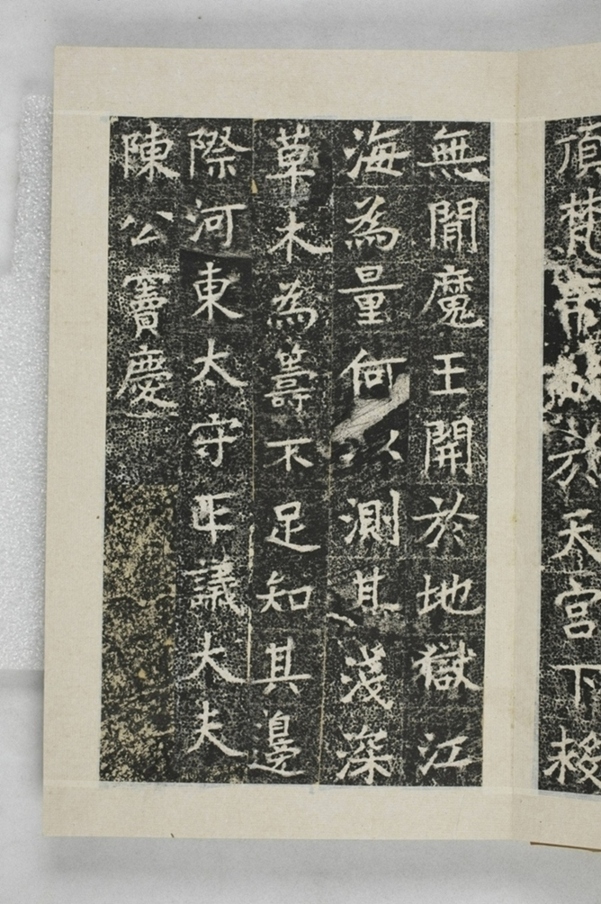 頂梵帝於天宮下
無閒魔王開於地獄江
海為量何以測其淺深
草木為籌不足知其邊
際河東太守正議大夫
陳公竇慶